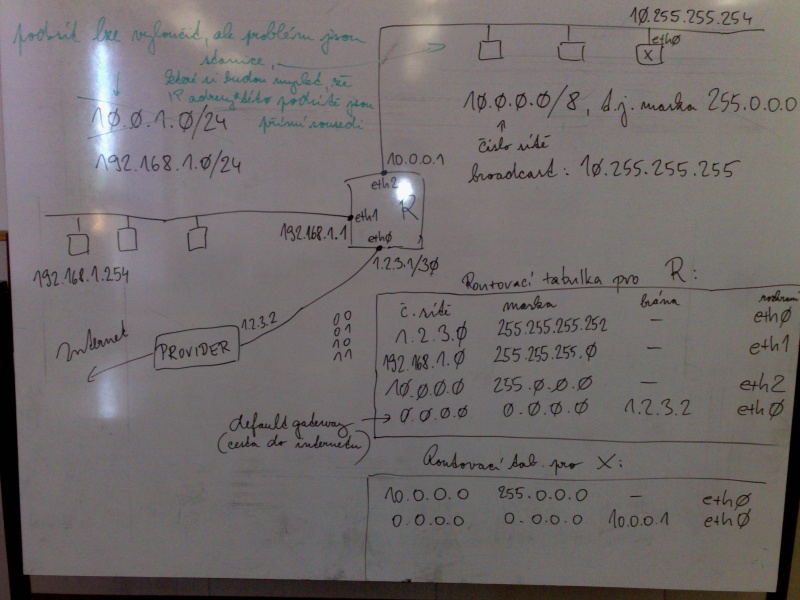 podsíť lze vyloučit, ale problém jsou
stanice,
které si budou myslet, že
IP adresy této podsítě jsou
přímí sousedi
10.0.1.0/24
192.168.1.0/24
10.255.255.254
eth0
X
10.0.0.0/8, t.j. maska 255.0.0.0
číslo sítě
broadcast: 10.255.255.255
10.0.0.1
eth2
R
eth1
192.168.1.1
eth0
1.2.3.1/30
192.168.1.254
1.2.3.2
PROVIDER
Internet
00
01
10
11
Routovací tabulka pro R:
č. sítě maska brána rozhraní
1.2.3.0 255.255.255.252 — eth0
192.168.1.0 255.255.255.0 — eth1
10.0.0.0 255.0.0.0 — eth2
0.0.0.0 0.0.0.0 1.2.3.2 eth0
default gateway
(cesta do internetu)
Routovací tab. pro X:
10.0.0.0 255.0.0.0 — eth0
0.0.0.0 0.0.0.0 10.0.0.1 eth0